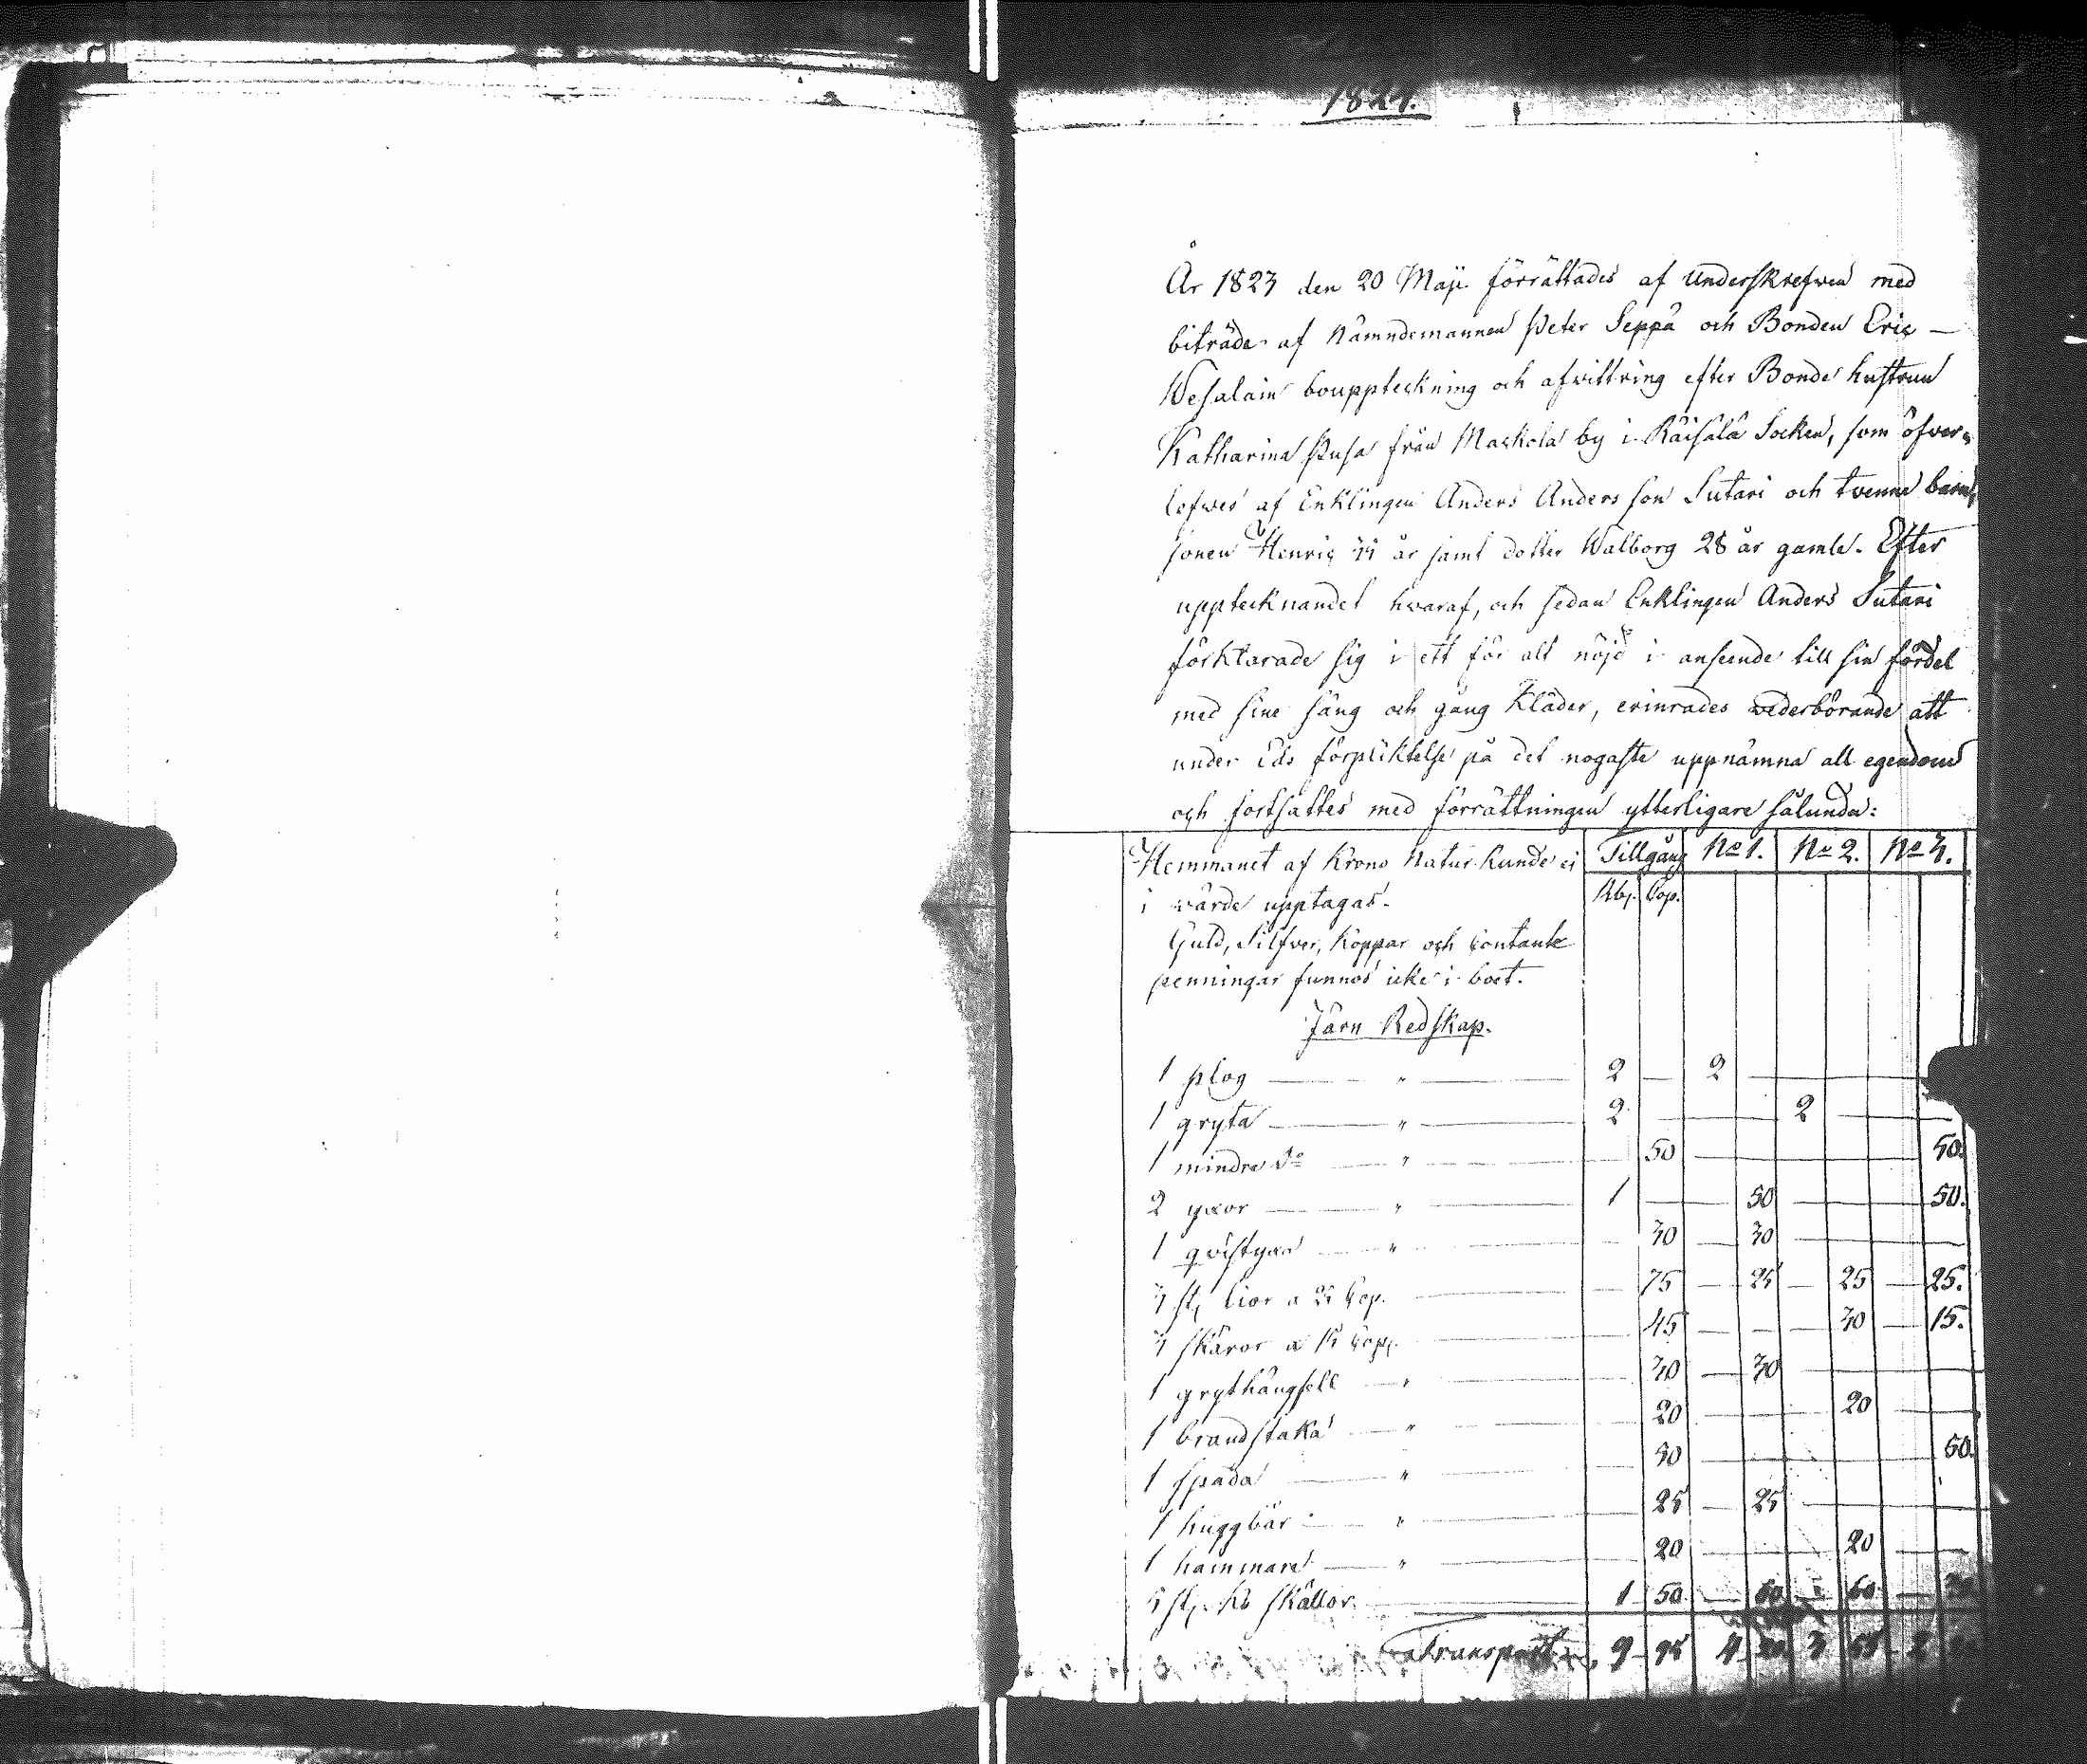 1824.
År 1823 den 20 Maji förrättades af underskrefven med
biträde af Nämndemannen Peter Seppä och Bonden Eric
Wesalain bouppteckning och afvittring efter Bonde hustrun
Katharina Pusa från Maskola by i Räisälä Socken, som öfver-
lefwes af Enklingen Anders Andersson Sutari och tvenne barn,
sonen Henric år samt dotter Walborg 28 år gamle. Efter
upptecknandet hwaraf, och sedan Enklingen Anders Sutari
förklarade sig i ett för allt nöjd i anseende till sin fördel
med sine säng och gång Kläder, erinrades vederbörande att
under Eds förpliktelse på det nogaste uppnämna all egendom
och fortsattes med förrättningen ytterligare sålunda:
Hemmanet af Krono Natur kunde ei | Tillgång | No 1. | No 2. | No 3.
i värde upptagas. Rbl. Cop.
Guld, Silfver, Koppar och Contante
penningar funnos icke i boet.
Järn Redskap.
1 plog — " — 2 — 2
1 gryta — " — 2 — 2
1 mindre do — " — 50 — 50.
2 yxor — " — 1 — 50 — 50.
1 qvistyxa — " — 30 — 30
3 st. liar a 25 Cop. — 75 — 25 — 25 — 25.
3 skäror a 15 Cop. — 45 — 30 — 15.
1 grythängsell — " — 30 — 30
1 brandstaka — " — 20 — 20
1 spada — " — 50 — 50.
1 huggbär — " — 25 — 25
1 hammare — " — 20 — 20
5 st. Ko skällor — 1 50 — 60 — 60 — 30
Transport 9 95 4 20 3 55 2